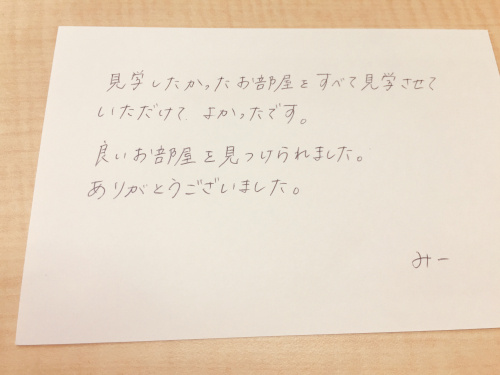 見学したかったお部屋をすべて見学させて
いただけて よかったです。
良いお部屋を見つけられました。
ありがとうございました。
みー